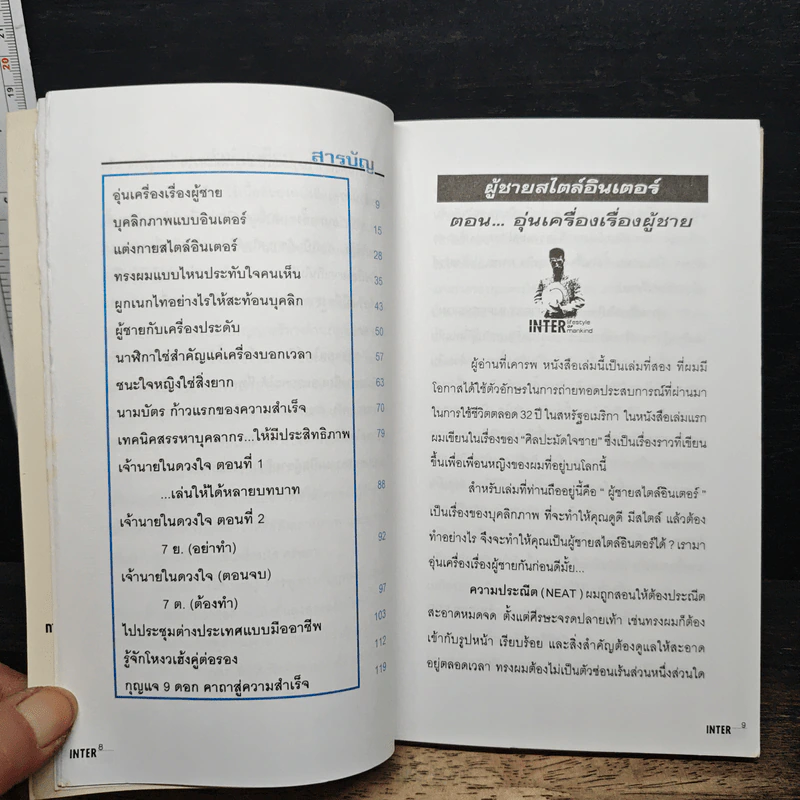 สารบัญ
อุ่นเครื่องเรื่องผู้ชาย 9
บุคลิกภาพแบบอินเตอร์ 15
แต่งกายสไตล์อินเตอร์ 28
ทรงผมแบบไหนประทับใจคนเห็น 35
ผูกเนกไทอย่างไรให้สะท้อนบุคลิก 43
ผู้ชายกับเครื่องประดับ 50
นาฬิกาใช่สำคัญแค่เครื่องบอกเวลา 57
ชนะใจหญิงใช่สิ่งยาก 63
นามบัตร ก้าวแรกของความสำเร็จ 70
เทคนิคสรรหาบุคลากร...ให้มีประสิทธิภาพ 79
เจ้านายในดวงใจ ตอนที่ 1
...เล่นให้ได้หลายบทบาท 88
เจ้านายในดวงใจ ตอนที่ 2
7 ย. (อย่าทำ) 92
เจ้านายในดวงใจ (ตอนจบ)
7 ต. (ต้องทำ) 97
ไปประชุมต่างประเทศแบบมืออาชีพ 103
รู้จักโหงวเฮ้งคู่ต่อรอง 112
กุญแจ 9 ดอก คาถาสู่ความสำเร็จ 119
INTER 8
ผู้ชายสไตล์อินเตอร์
ตอน... อุ่นเครื่องเรื่องผู้ชาย
INTER lifestyle of mankind
ผู้อ่านที่เคารพ หนังสือเล่มนี้เป็นเล่มที่สอง ที่ผมมี
โอกาสได้ใช้ตัวอักษรในการถ่ายทอดประสบการณ์ที่ผ่านมา
ในการใช้ชีวิตตลอด 32 ปี ในสหรัฐอเมริกา ในหนังสือเล่มแรก
ผมเขียนในเรื่องของ "ศิลปะมัดใจชาย" ซึ่งเป็นเรื่องราวที่เขียน
ขึ้นเพื่อเพื่อนหญิงของผมที่อยู่บนโลกนี้
สำหรับเล่มที่ท่านถืออยู่นี้คือ " ผู้ชายสไตล์อินเตอร์ "
เป็นเรื่องของบุคลิกภาพ ที่จะทำให้คุณดูดี มีสไตล์ แล้วต้อง
ทำอย่างไร จึงจะทำให้คุณเป็นผู้ชายสไตล์อินเตอร์ได้ ? เรามา
อุ่นเครื่องเรื่องผู้ชายกันก่อนดีมั้ย...
ความประณีต (NEAT ) ผมถูกสอนให้ต้องประณีต
สะอาดหมดจด ตั้งแต่ศีรษะจรดปลายเท้า เช่นทรงผมก็ต้อง
เข้ากับรูปหน้า เรียบร้อย และสิ่งสำคัญต้องดูแลให้สะอาด
อยู่ตลอดเวลา ทรงผมต้องไม่เป็นตัวซ่อนเร้นส่วนหนึ่งส่วนใด
INTER 9